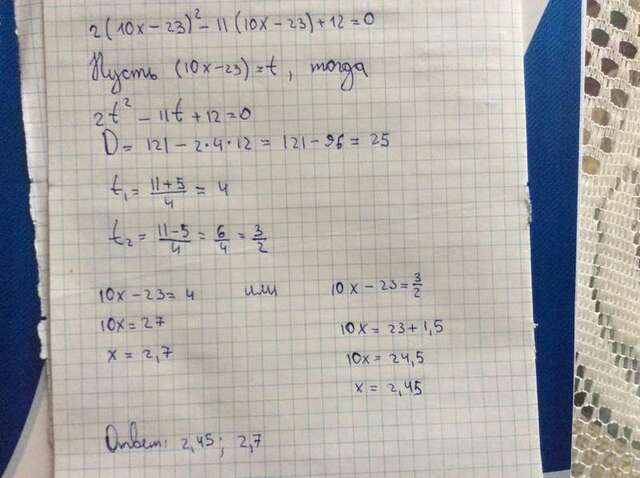 2(10x-23)²-11(10x-23)+12=0
Пусть (10x-23)=t, тогда
2t²-11t+12=0
D=121-2·4·12=121-96=25
t₁=\frac{11+5}{4}=4
t₂=\frac{11-5}{4}=\frac{6}{4}=\frac{3}{2}
10x-23=4 или 10x-23=\frac{3}{2}
10x=27 10x=23+1,5
x=2,7 10x=24,5
x=2,45
Ответ: 2,45; 2,7